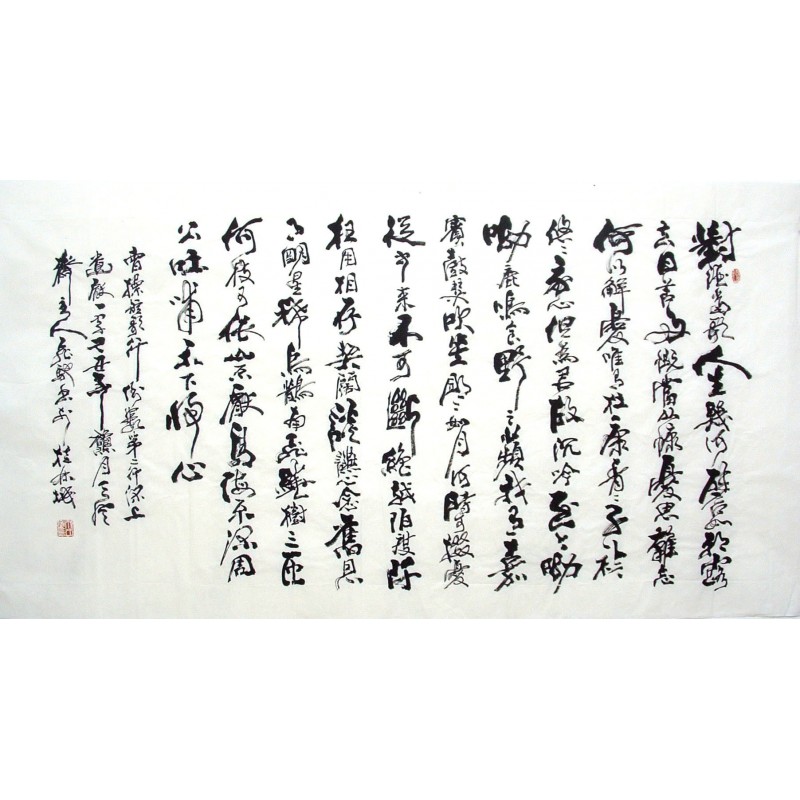 對酒當歌人生幾何譬如朝露
去日苦多慨當以慷憂思難忘
何以解憂唯有杜康青〻子衿
悠〻我心但為君故沉吟至今呦
呦鹿鳴食野之蘋我有嘉
賓鼓瑟吹笙明〻如月何時掇憂
從中來不可斷絕越陌度阡
枉用相存契闊談讌心念舊恩
月明星稀烏鵲南飛繞樹三匝
何枝可依山不厭高海不深周
公吐哺天下歸心
曹操短歌行
主人
桂林